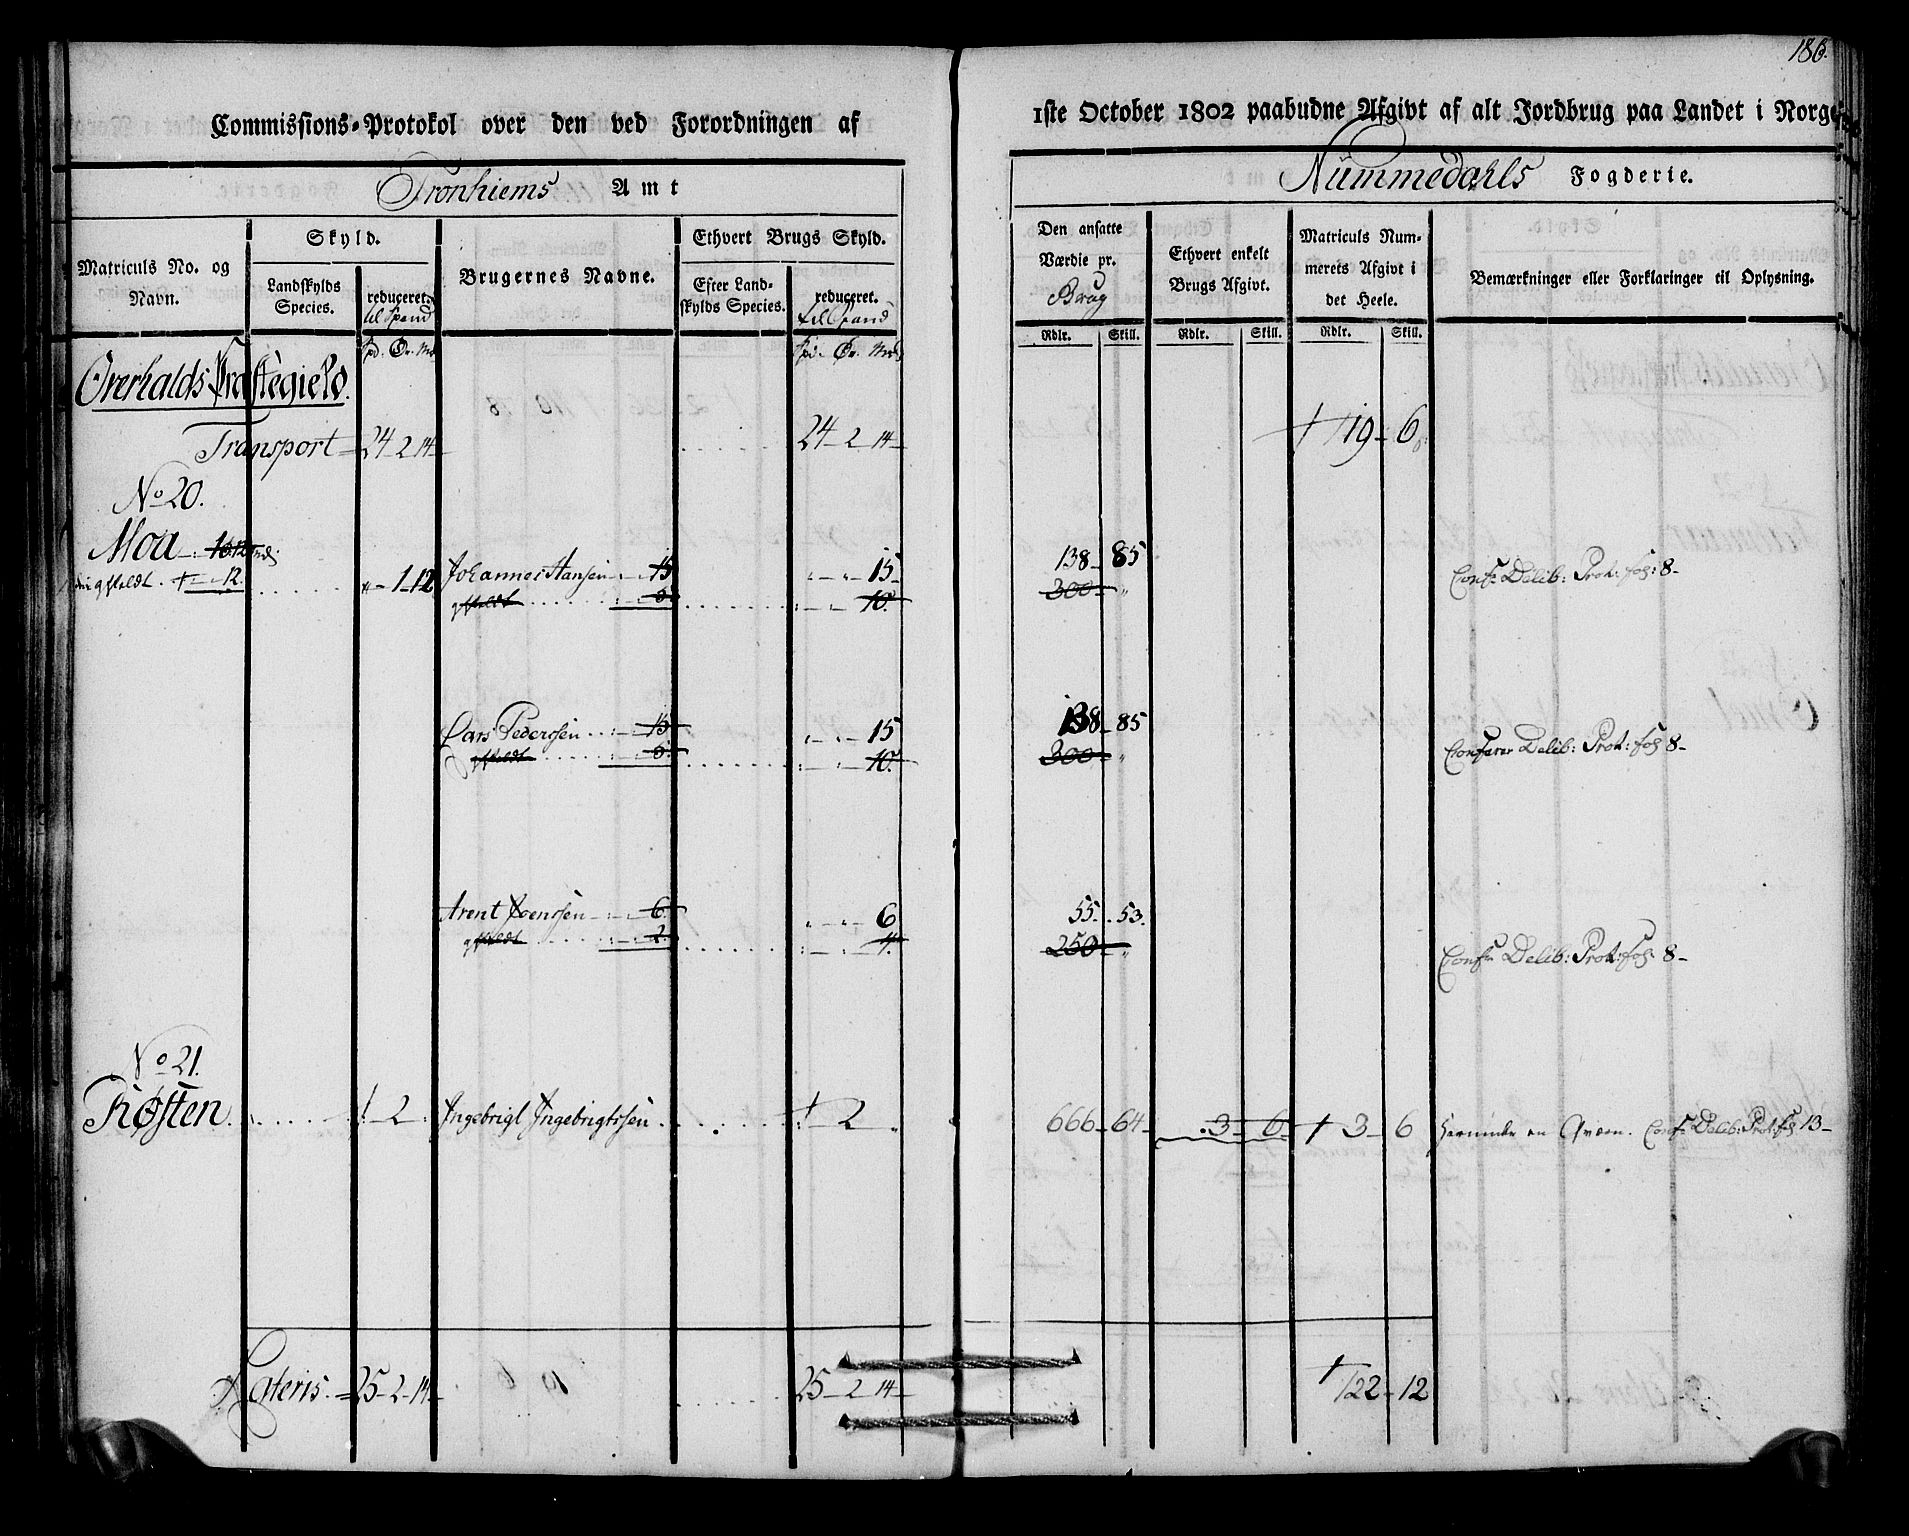 186.
Commissions-Protokol over den ved Forordningen af
1ste October 1802 paabudne Afgivt af alt Jordbrug paa Landet i Norge
Tronhiems Amt
Nummedahls Fogderie.
Matriculs No. og Navn.
Skyld.
Landskylds Species.
reduceret til Spand
Brugernes Navne.
Ethvert Brugs Skyld.
Efter Landskylds Species.
reduceret. til Spand
Den ansatte Værdie pr. Brug
Ethvert enkelt Brugs Afgivt.
Matriculs Nummerets Afgivt i det Heele.
Bemærkninger eller Forklaringer til Oplysning.
Rdlr. Skill. Rdlr. Skill. Rdlr. Skill.
Overhalds Præstegield.
Transport 24 2 14 24 2 14 119 6
No 20.
Moa 1 12 Johannes Hansen 15 15 138 85 Conf: Delib: Prot: fol: 8
10 300
Lars Pedersen 15 15 138 85 Conferer Delib: Prot: fol 8
10 300
Arent Joensen 6 6 55 53 Conf: Delib: Prot: fol: 8
2 4 250
No 21.
Røsten 1 2 Ingebrigt Ingebrigtssen 1 2 666 64 3 6 3 6 Herunder en Qværn. Conf: Delib: Prot: fol 13
Lateris 25 2 14 25 2 14 122 12